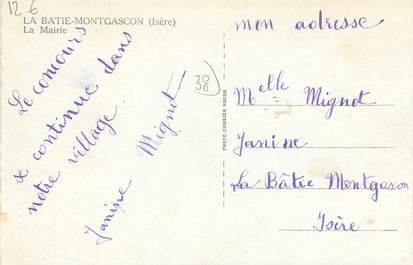 12 €
LA BATIE-MONTGASCON (Isère)
La Mairie
Le concours
se continue dans
notre village.
Janine Mignot
38
PHOTO COMBIER MACON
mon adresse
Melle Mignot
Janine
La Bâtie Montgascon
Isère